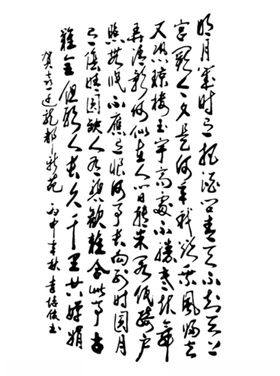 明月几时有把酒问青天不知天上
宫阙今夕是何年我欲乘风归去
又恐琼楼玉宇高处不胜寒起舞
弄清影何似在人间转朱阁低绮户
照无眠不应有恨何事长向别时圆月
有阴晴圆缺人有悲欢离合此事古
难全但愿人长久千里共婵娟
贺喜迁龙都新苑 丙申年秋 书